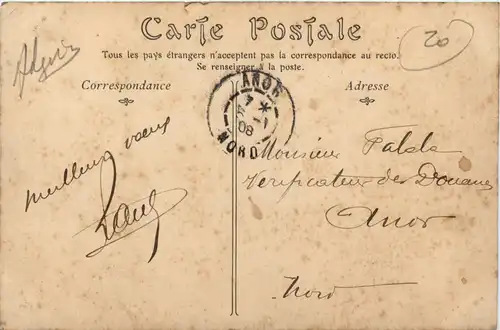 Carte Postale
Tous les pays étrangers n'acceptent pas la correspondance au recto.
Se renseigner à la poste.
20
Correspondance
Adresse
ANOR
7 *
08
NORD
meilleurs vœux
Monsieur
Verificateur des Douanes
Anor
Nord